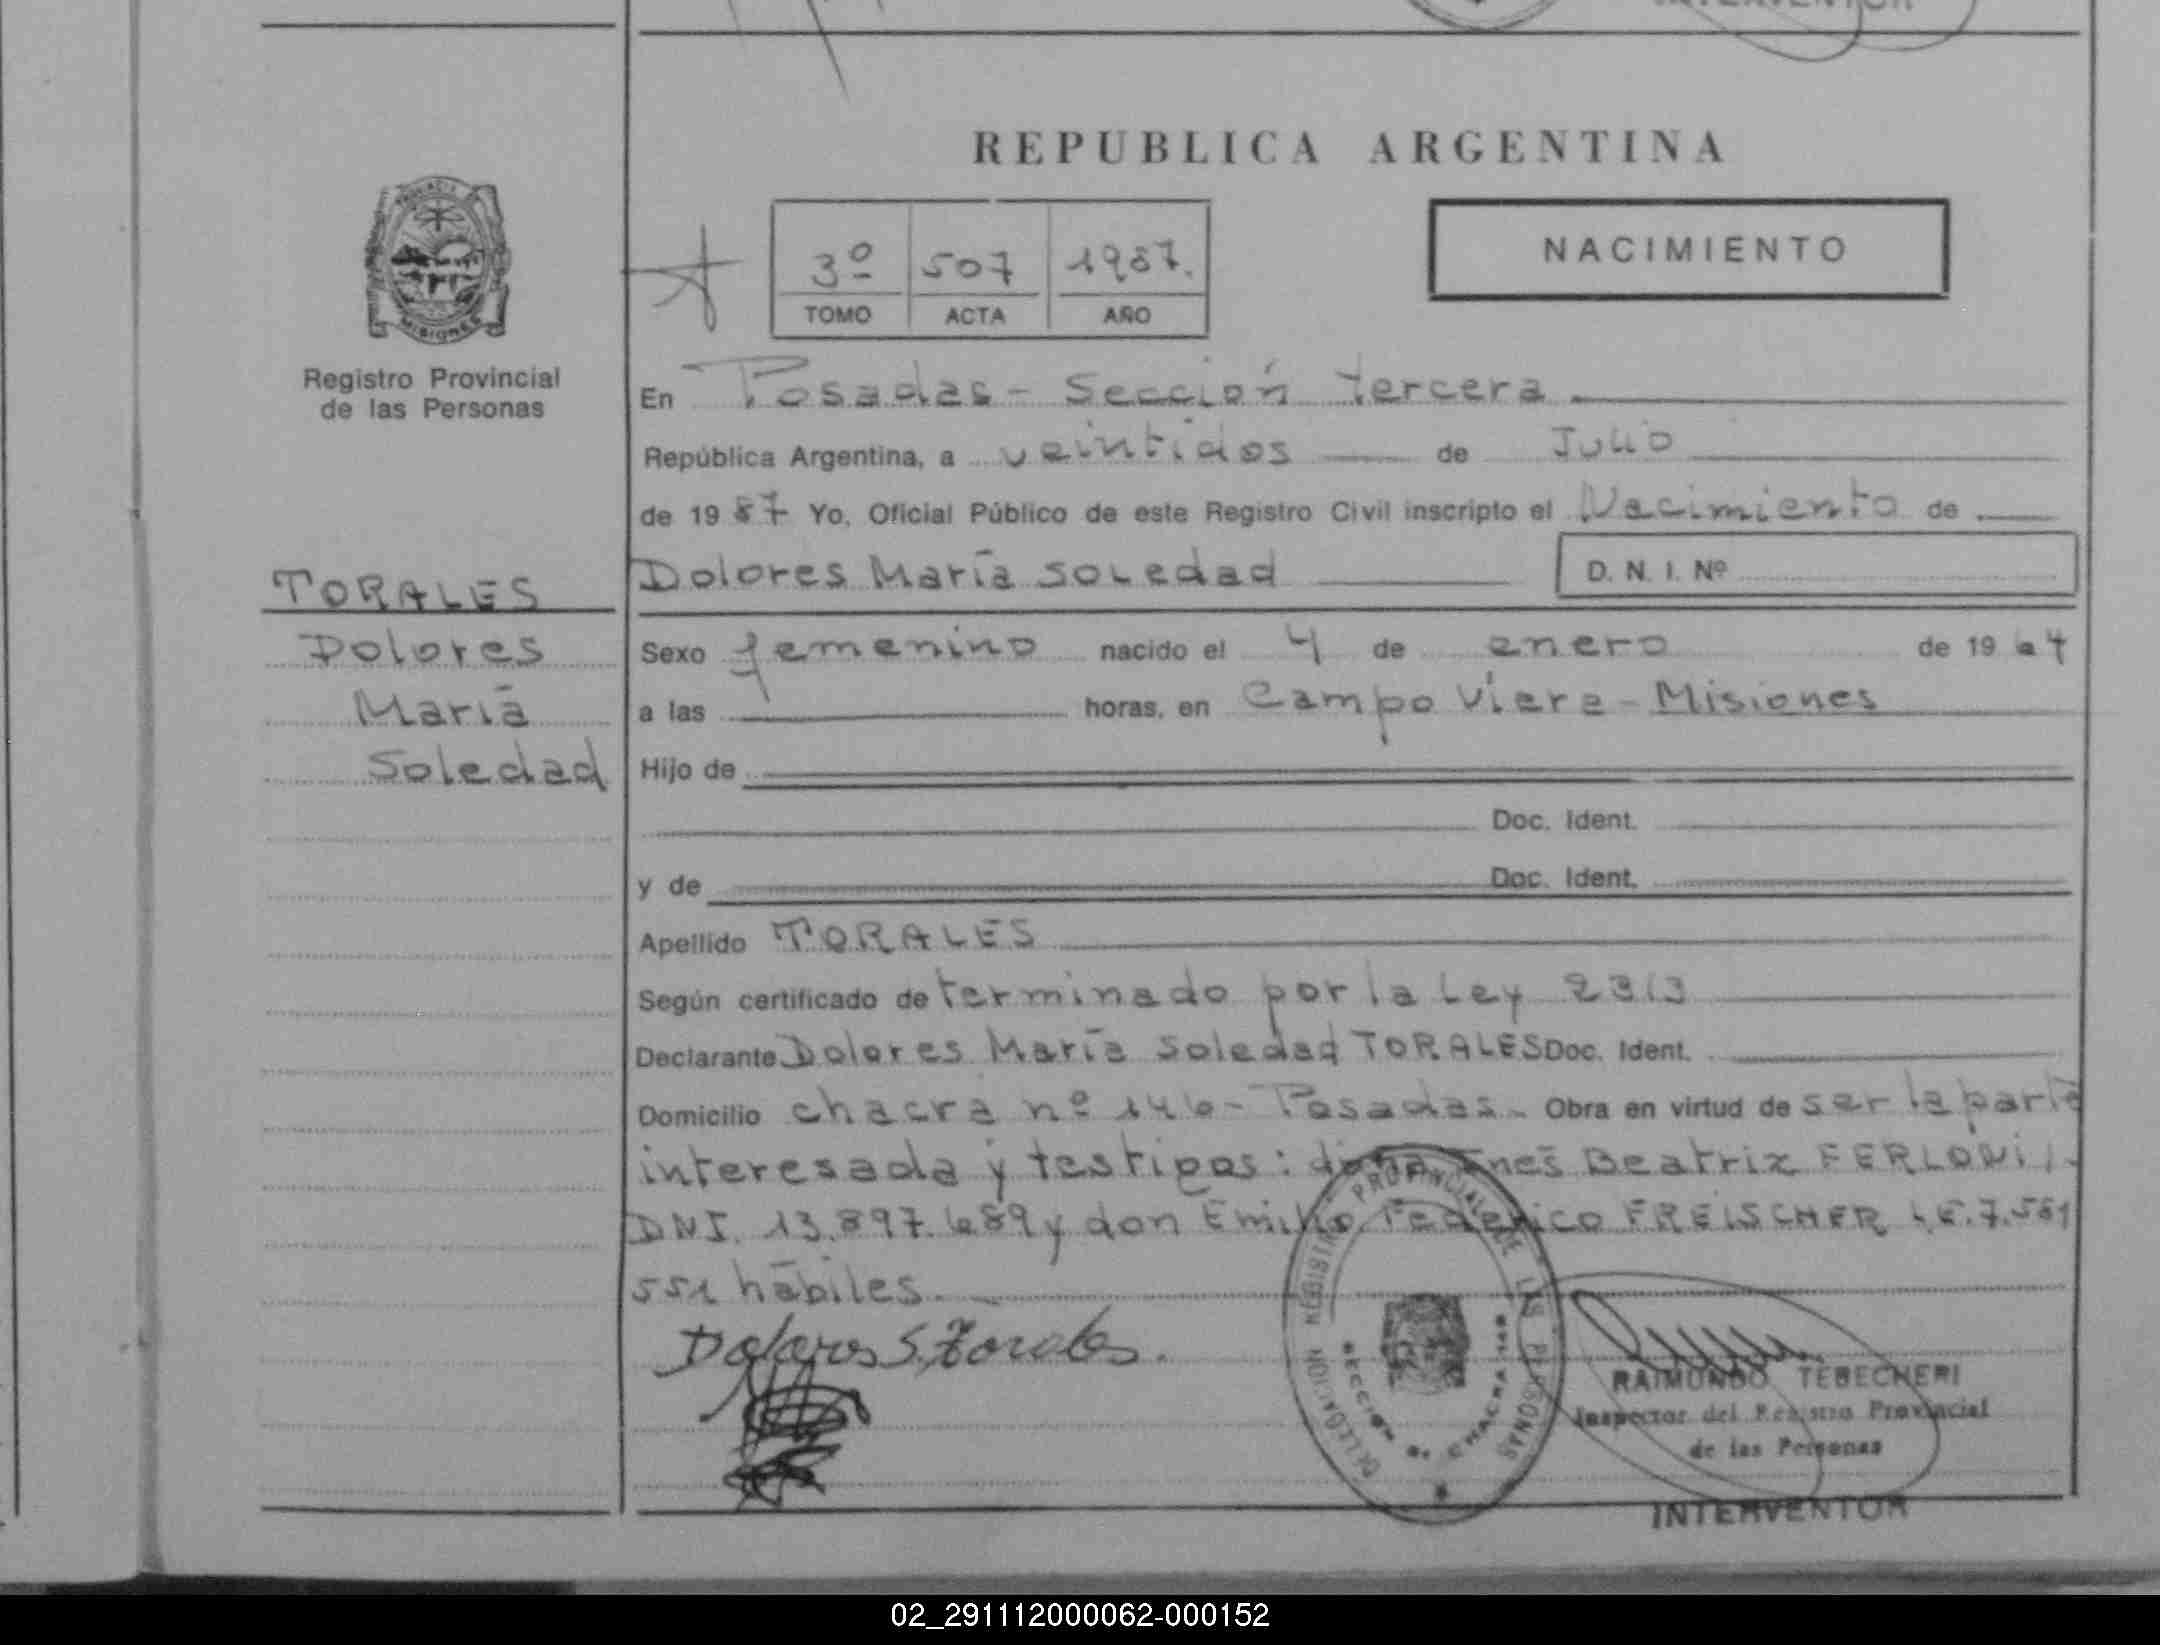 INTERVENTOR
REPUBLICA ARGENTINA
PROVINCIA
MISIONES
Registro Provincial
de las Personas
3º 507 1987.
TOMO ACTA AÑO
NACIMIENTO
En Posadas - Sección Tercera
República Argentina, a veintidos de Julio
de 1987 Yo, Oficial Público de este Registro Civil inscripto el Nacimiento de
Dolores María Soledad D. N. I. Nº
TORALES
Dolores
María
Soledad
Sexo femenino nacido el 4 de enero de 19
a las horas, en Campo Viera - Misiones
Hijo de
Doc. Ident.
y de Doc. Ident.
Apellido TORALES
Según certificado de terminado por la Ley 2313
Declarante Dolores María Soledad TORALES Doc. Ident.
Domicilio chacra nº 146 - Posadas - Obra en virtud de ser la parte
interesada y testigos: doña Inés Beatriz FERLONI
DNI. 13.897.689 y don Emilio Federico FREISCHER L.E. 7.561
551 hábiles.
Dolores S. Torales.
DELEGACION REGISTRO PROVINCIAL DE LAS PERSONAS
SECCION 3a. CHACRA 146
RAIMUNDO TEBECHERI
Inspector del Registro Provincial
de las Personas
INTERVENTOR
02_291112000062-000152